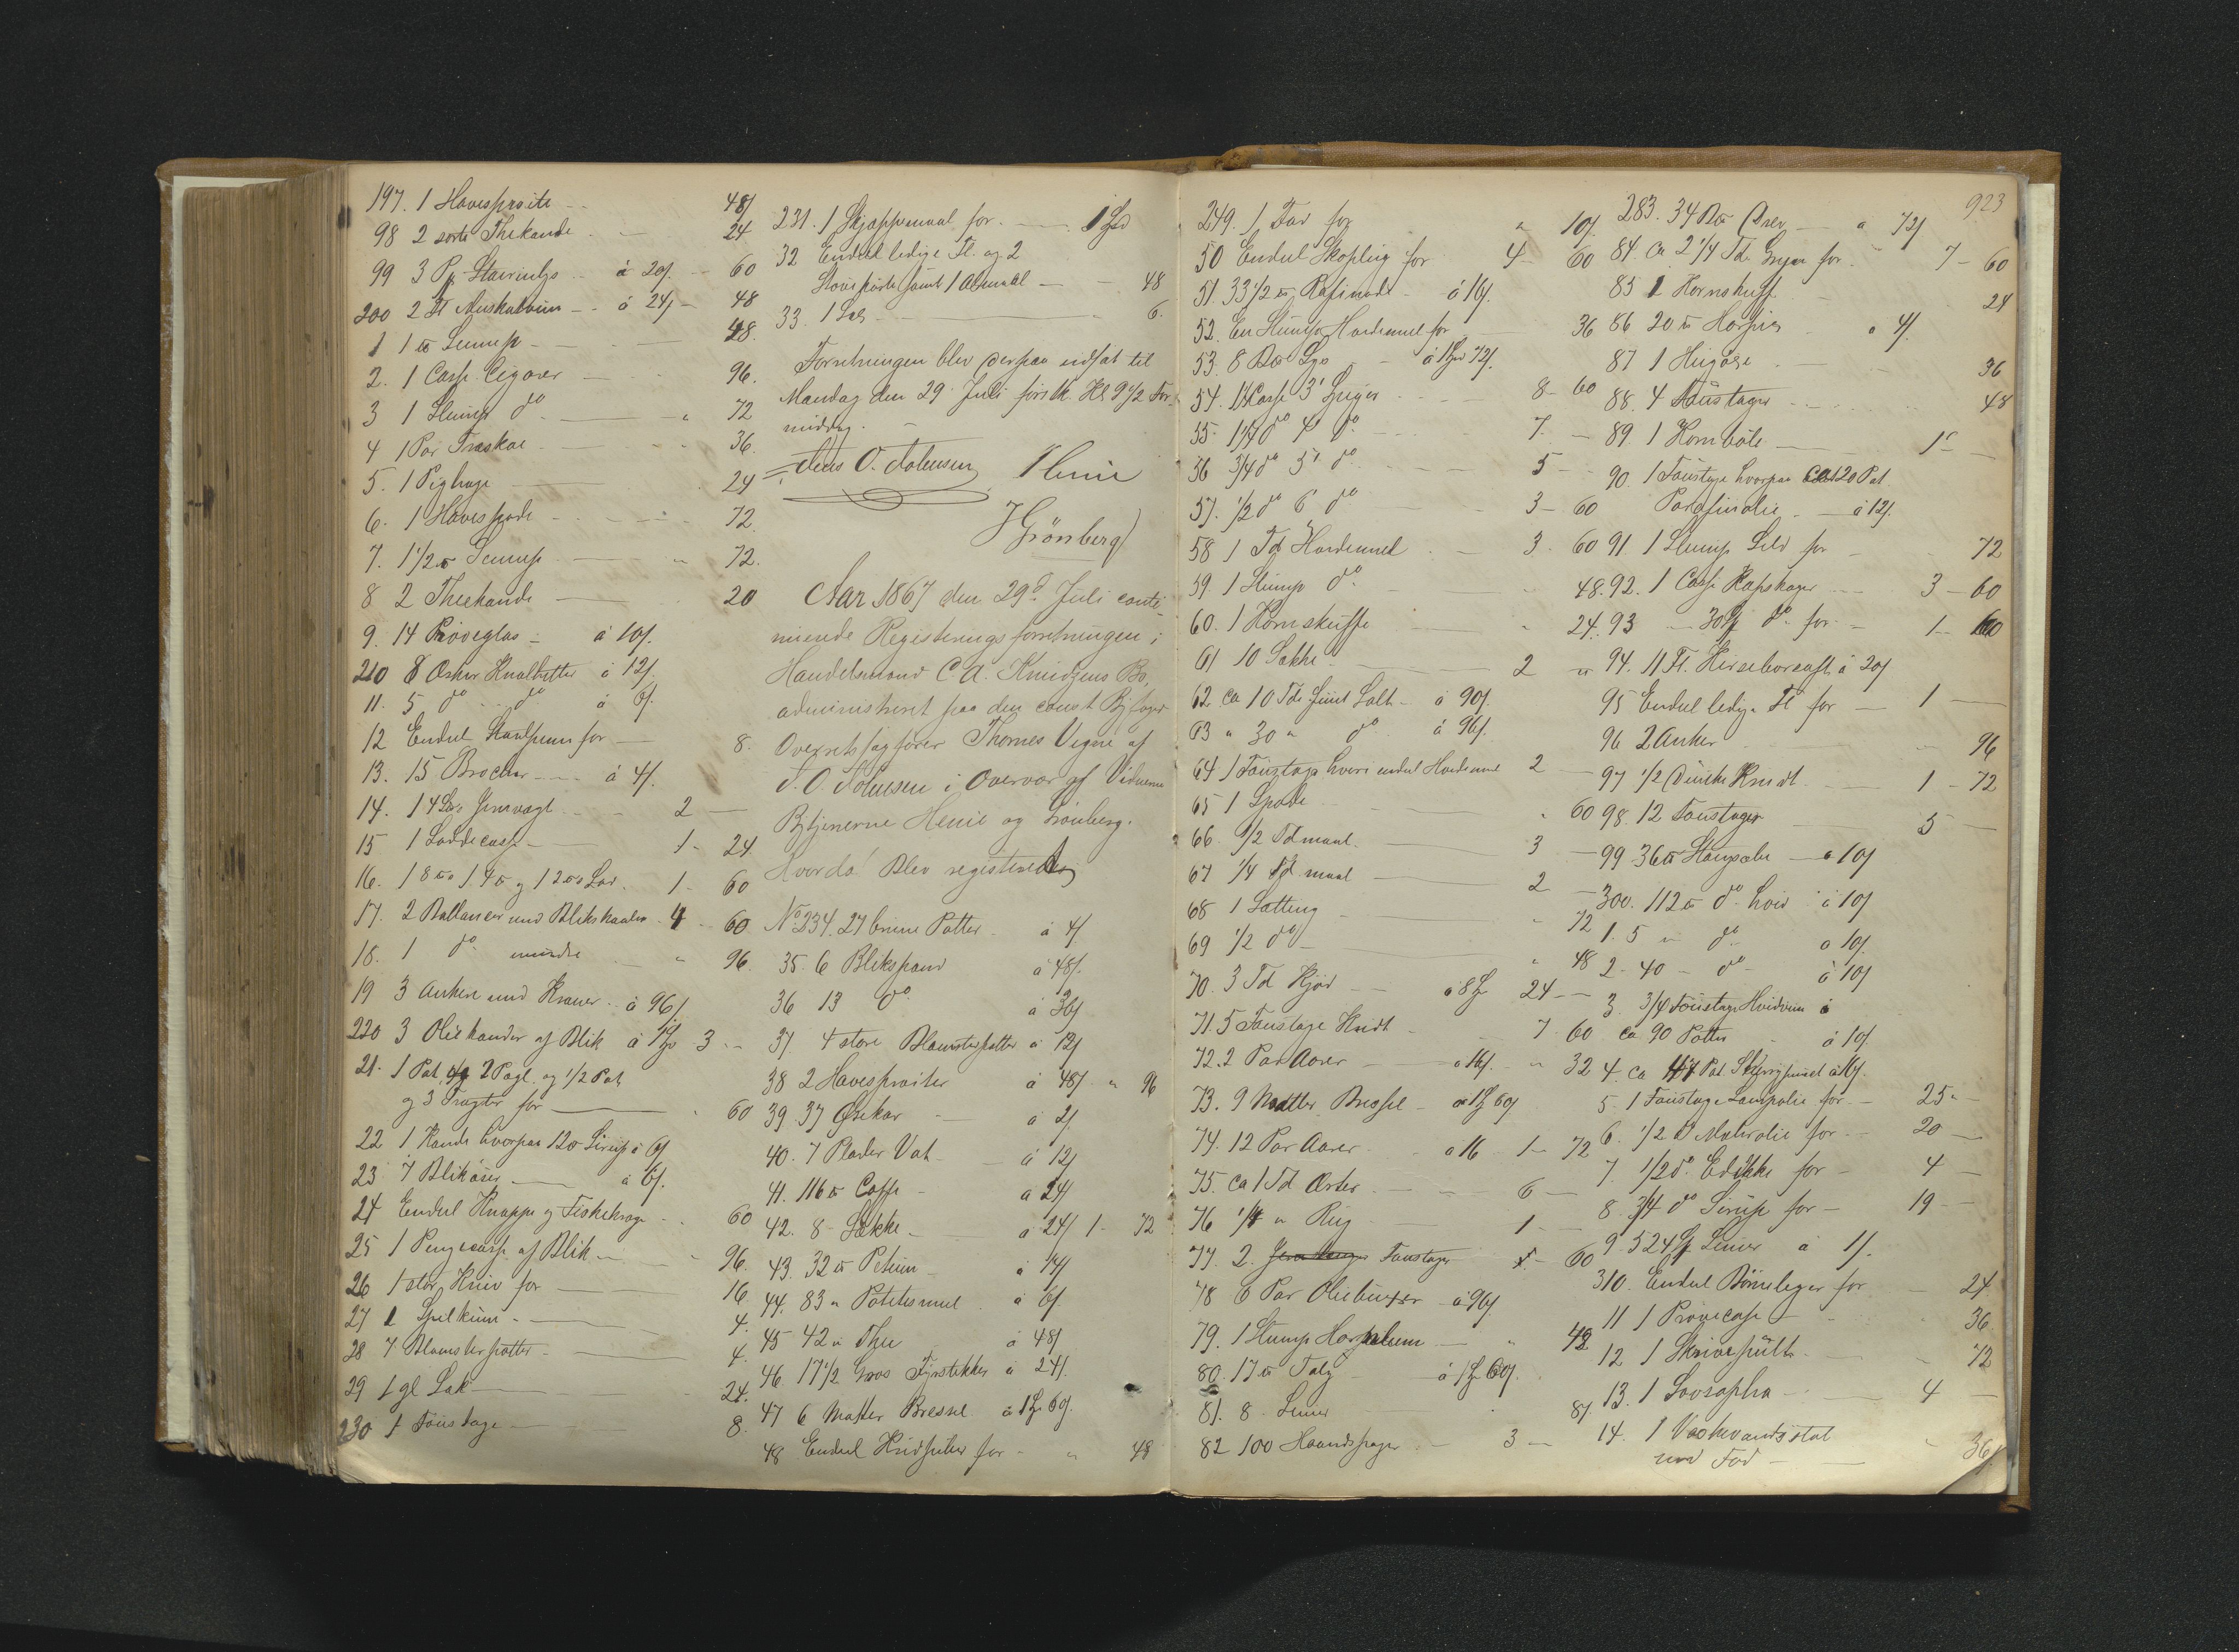 197. 1 Havesprøite - - 48/
98 2 sorte Thekande - 24
99 3 Pk. à 20/. - 60
200 2 Fl Muskatvin - à 24/ - 48
1 1 ℔ Sennep - 48.
2. 1 Casse Cigarer - 96.
3 1 Slump do - " 72
4 1 Par Træskoe - 36.
5. 1 Pighage - 24
6. 1 Havespade - 72.
7. 1 1/2 ℔ Sennep - " 72.
8 2 Theekande - 20
9. 14 Prøveglas - à 10/.
210 8 Æsker Knalhetter à 12/.
11. 5 do do à 6/.
12 Endeel for - 8.
13. 15 Brocher - à 4/.
14. 1 4 Jernvægt - 2 -
15 1 Loddecasse - 1 - 24
16. 1 8 ℔s 1 4 ℔ og 1 2 ℔s Lod. 1 - 60
17. 2 Ballancer med Blikskaaler - 4 - 60
18. 1 do mindre " 96.
19 3 Ankere med Kraner - à 96/.
220 3 Oliekander af Blik à 1 3 - -
21. 1 Pot, 2 Pægl. og 1/2 Pot
og 3 Tragter for - 60
22 1 Kande hvorpaa 12 ℔ Sirup à 6/
23 7 Blikøser - à 6/.
24 Endeel Knappe og Fiskekroge - 60
25 1 Pengecasse af Blik - " 96.
26 1 stor Kniv for - 16
27 1 Spilkum - 4.
28 7 Blomsterpotter - 4.
29 1 gl Lak - 24.
230 1 Foustage - 8.
231. 1 Skjæppemaal for - 1
32 Endeel ledige Fl. og 2
samt 1 Alemaal - 48
33. 1 - 6.
Forretningen blev derpaa udsat til
Mandag den 29 Juli førstk. Kl 9 1/2 For-
middag. -
Jens O. Johnsen Henie
J Grönberg
Aar 1867 den 29d Juli conti-
nuerede Registeringsforretningen i
Handelsmand C A. Bo,
administreret paa den const Byfoged
Overretssagfører Thomes Vegne af
J. O. Johnsen i Overvær af Vidnerne
Bytjenerne Henie og Grönberg.
Hvorda! Blev registreret
No 234. 27 brune Potter - à 4/
35. 6 Blikspand à 48/.
36 13 do à 36/
37 4 store Blomsterpotter à 12/
38 2 Havesprøiter à 48/. " 96
39. 37 Øsekar - à 2/
40. 7 Plader Vat - à 12/
41. 116 ℔ Caffe - à 24/
42. 8 Sække - à 24/ 1 - 72
43. 32 ℔ Petum à 14/
44. 83 " Potetesmel à 6/.
45 42 " Thee à 48/
46. 17 1/2 Gros Fyrstikker à 24/.
47 6 Matter Bressel à 1 60/.
48 Endeel for - " 48
249. 1 Fad for " 10/.
50 Endeel Skopling for 4 - 60
51. 33 1/2 ℔ Rafinade - à 16/.
52. En Slump Hvedemel for 36
53. 8 Lys - à 1 72/.
54. 1 1/4 Casse 3" Spiger - 8 - 60
55. 1 1/4 do 4" do - 7. -
56 3/4 do 5" do - 5 -
57. 1/2 do 6" do 3 - 60
58 1 Td Hvedemel - 3 - 60
59. 1 Slump do - 48.
60. 1 Kornskuffe " 24.
61 10 Sække - 2 "
62. Ca 10 Tdr fiint Salt - à 90/.
63 " 30 " do à 96/.
64 1 Foustage hvori endeel Hvedemel 2 -
65 1 Spade - " 60
66. 1/2 Tdmaal. - 3 -
67 1/4 Td maal - 2 -
68 1 Sætting - " 72
69 1/2 do - " 48
70. 3 Td Kjød - à 8 24 -
71. 5 Foustage Kridt - 7 - 60
72. 2 Par Aarer - à 16/. " 32
73. 9 Matter Bressel - à 1 60/
74. 12 Par Aarer - à 16 1 - 72
75. Ca 1 Td Erter - 6 -
76 1/4 " Rug - 1 -
77. 2. Foustager - 60
78 6 Par Oliebuxer - à 96/.
79. 1 Slump - " 48
80. 17 ℔ Talg à 1 60/.
81. 8 8/.
82 100 Haandspager - 3 -
923
283. 34 - à 72/
84. Ca 2 1/4 Td. Gryn for - 7 - 60
85 1 Hornskuff - 24
86 20 ℔ Harpix à 4/.
87 1 - 36
88. 4 Foustager - 48
89. 1 - 1 -
90. 1 Foustage hvorpaa ca 120 Pot
Parafinolie - à 12/.
91. 1 Slump Sild for - 72
92. 1 Casse Rapskager - 3 - 60
93 - 30 do for - 1 - 60
94. 11 Fl. Kirsebærsaft à 20/
95 Endeel ledige Fl for - 1 -
96 2 Anker " 96
97 1/2 Kridt - 1 - 72
98. 12 Foustager - 5 -
99 36 ℔ - à 10/
300. 112 ℔ do hvid à 10/
1. 5 " do à 10/.
2 - 40 - do - à 10/
3. 3/4 Foustage Hvidviin à
ca 90 Potter à 10/.
4. ca 47 Pot
5. 1 Foustage Lampolie for - 25 "
6. 1/2 d Malerolie for - 20 -
7. 1/2 do Edikke for - 4 -
8 3/4 do Sirup for - 19 -
9. 524 à 1/.
310. Endeel for 24
11 1 Prøvecasse - 36
12 1 Skrivepult - 72
13. 1 Sovsopha - 4 -
14. 1 Vaskevandsstol
med Fad - 36/